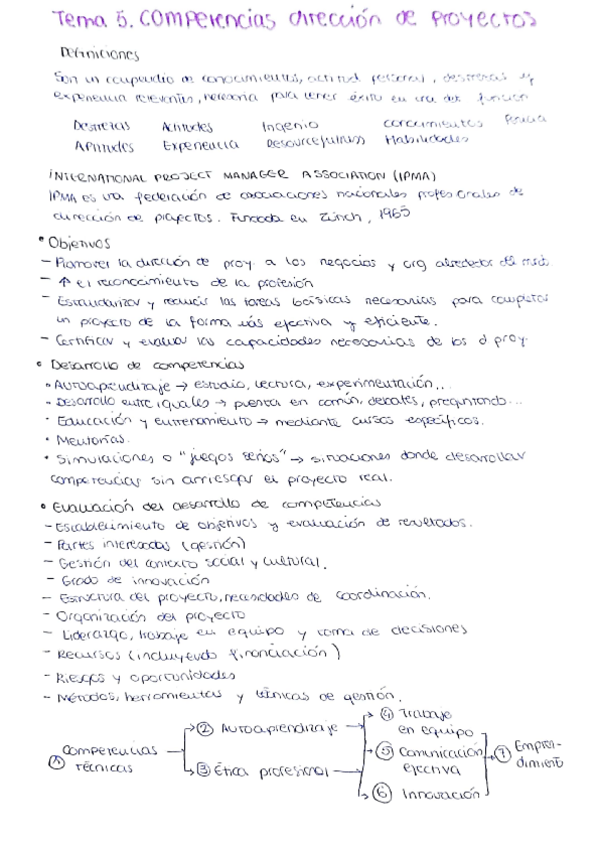 Tema 5. Competencias dirección de proyectos
Definiciones
Son un compendio de conocimientos, actitud personal, destrezas y
experiencia relevantes, necesaria para tener éxito en una det. función
Destrezas Actitudes Ingenio conocimientos Pericia
Aptitudes Experiencia Resourcefulness Habilidades
INTERNATIONAL PROJECT MANAGER ASSOCIATION (IPMA)
IPMA es una federación de asociaciones nacionales profesionales de
dirección de proyectos. Fundada en Zürich, 1965
• Objetivos
- Promover la dirección de proy. a los negocios y org alrededor del
- ↑ el reconocimiento de la profesión
- Estandarizar y reducir las tareas básicas necesarias para completar
un proyecto de la forma más efectiva y eficiente.
- Certificar y evaluar las capacidades necesarias de los d proy.
• Desarrollo de competencias
• Autoaprendizaje → estudio, lectura, experimentación...
• Desarrollo entre iguales → puesta en común, debates, preguntando...
• Educación y entrenamiento → mediante cursos específicos.
• Mentorías.
• Simulaciones o "juegos serios" → situaciones donde desarrollar
competencias sin arriesgar el proyecto real.
• Evaluación del desarrollo de competencias
- Establecimiento de objetivos y evaluación de resultados.
- Partes interesadas (gestión)
- Gestión del contexto social y cultural.
- Grado de innovación
- Estructura del proyecto, necesidades de coordinación.
- Organización del proyecto
- Liderazgo, trabajo en equipo y toma de decisiones
- Recursos (incluyendo financiación)
- Riesgos y oportunidades
- Métodos, herramientas y técnicas de gestión.
① Competencias técnicas
② Autoaprendizaje
③ Ética profesional
④ Trabajo en equipo
⑤ Comunicación efectiva
⑥ Innovación
⑦ Emprendimiento